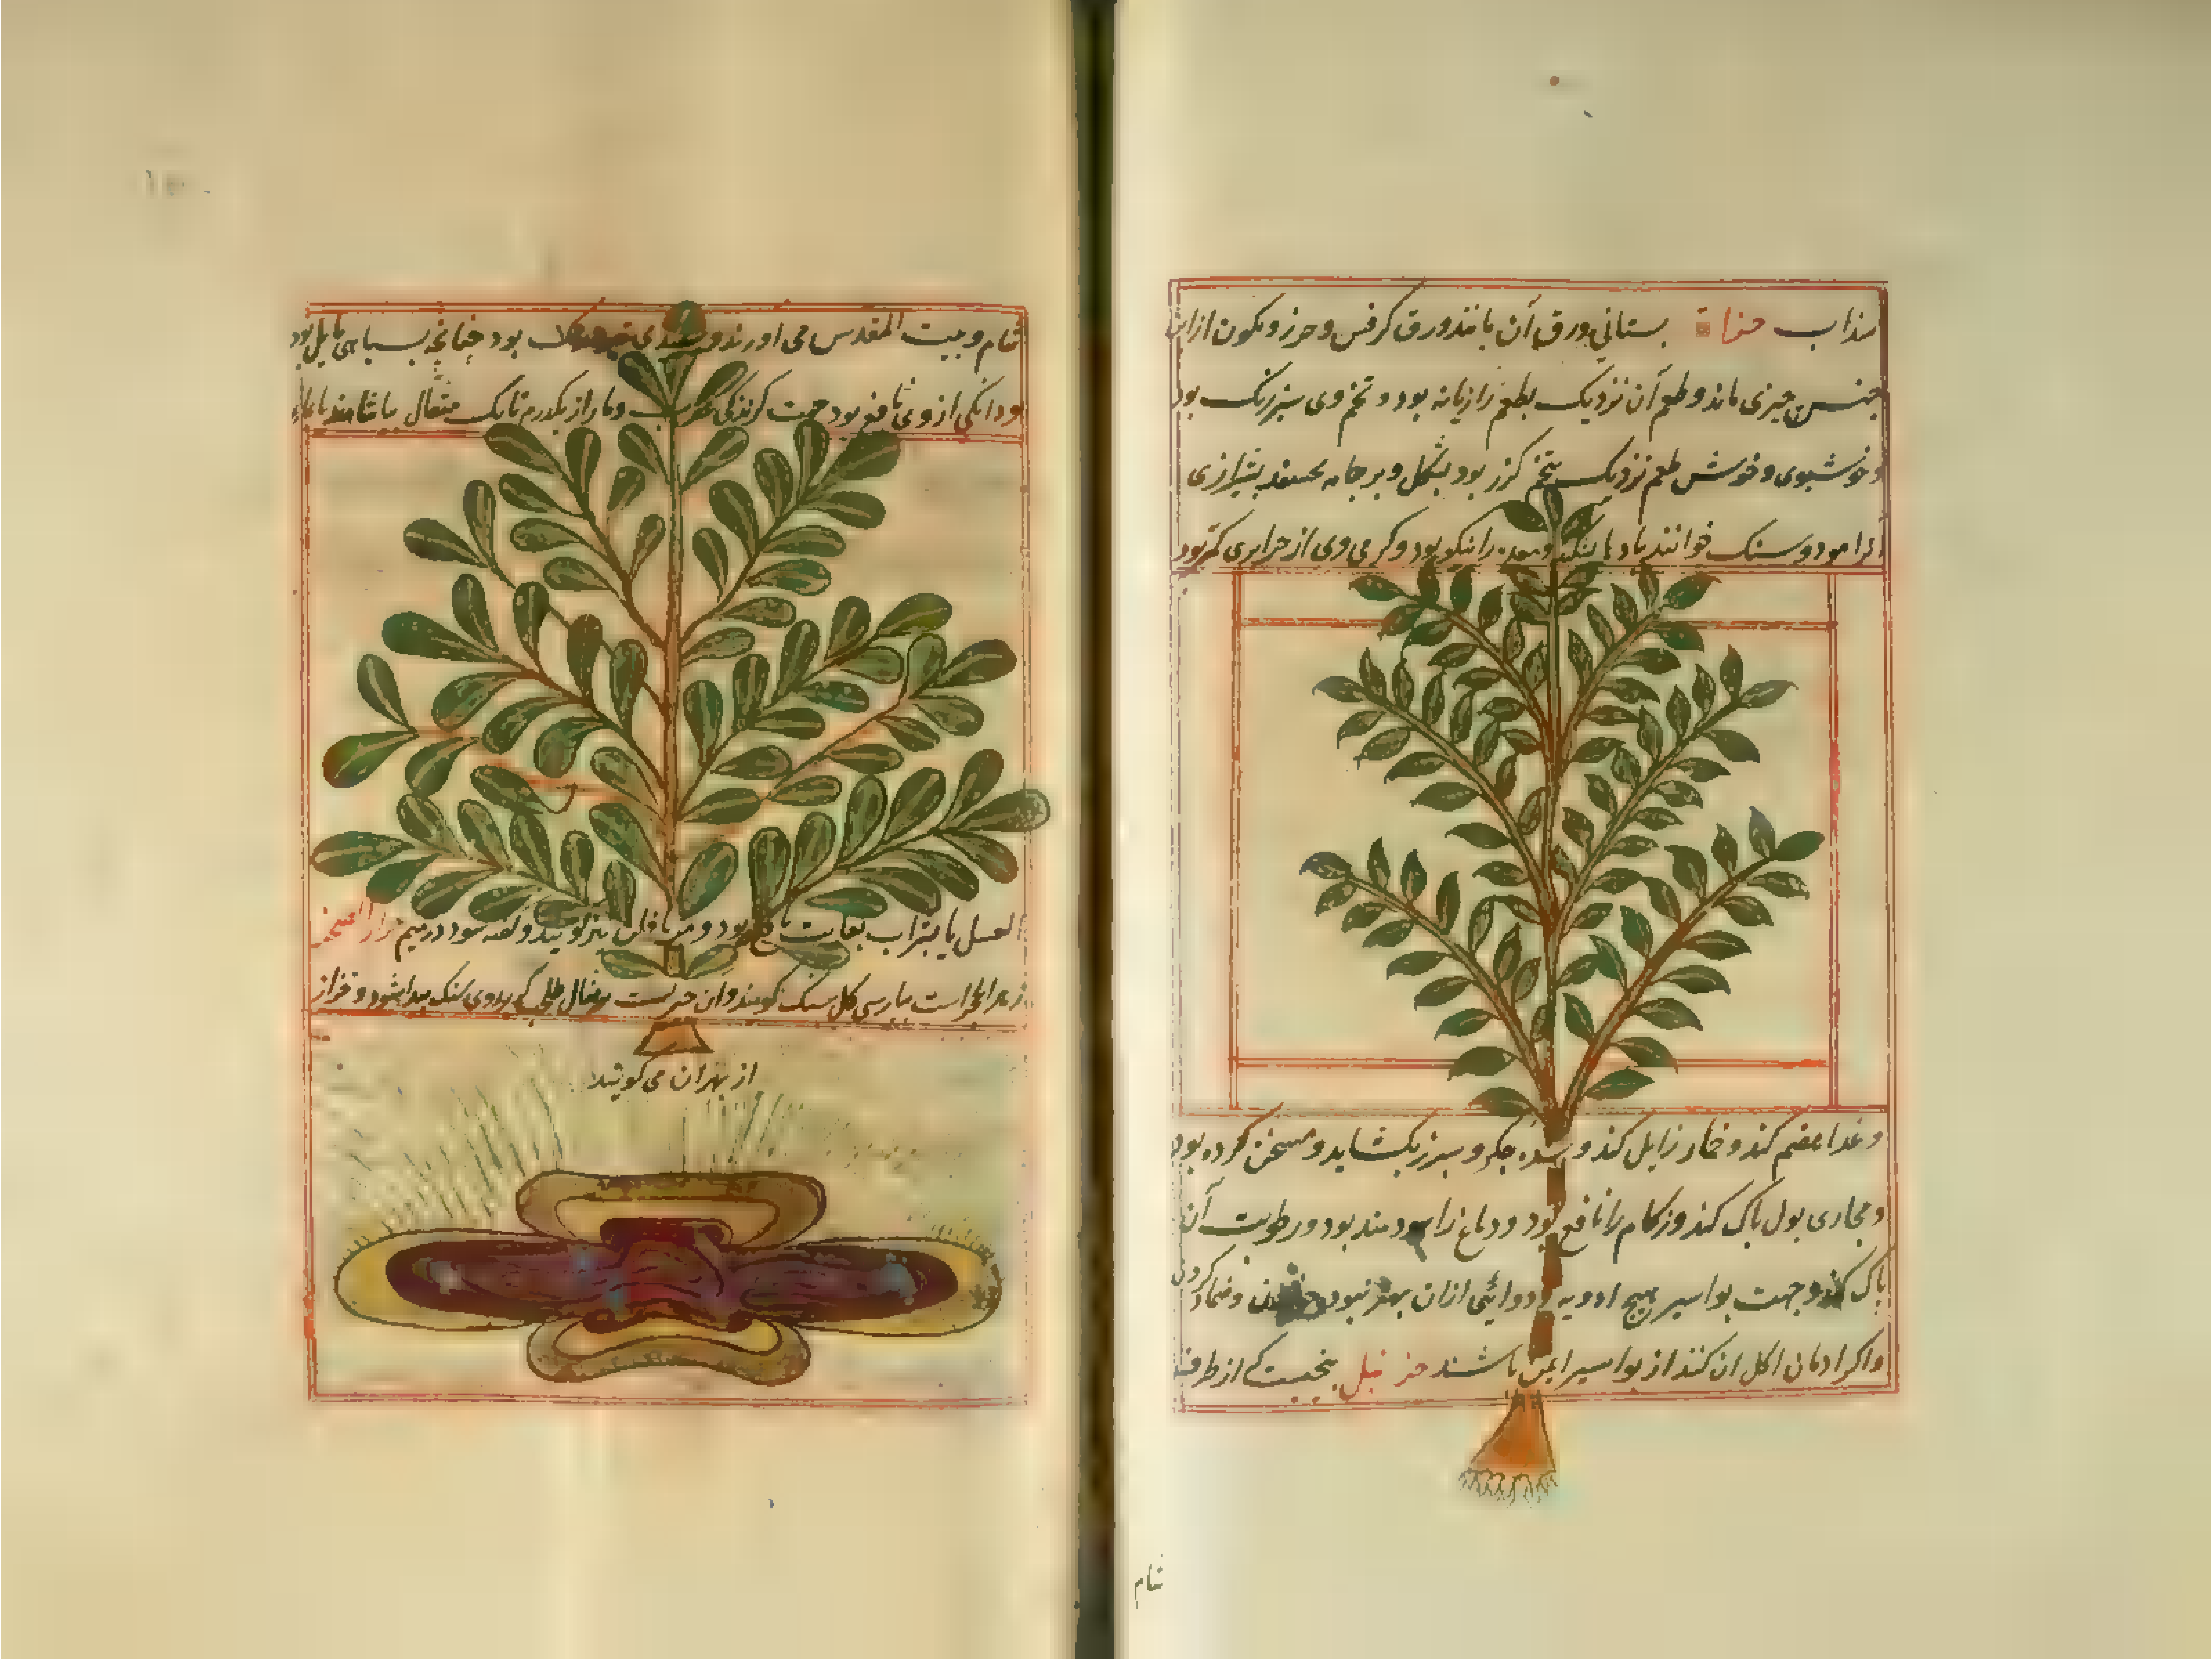 سذاب حزاة بستانی ورق آن مانند ورق کرفس و جزر و نکون از این
جنس چیزی ماند و طعم آن نزدیک بطعم رازیانه بود و تخم وی سبز رنگ بود
و خوشبوی و خوش طعم نزدیک بتخم گزر بود بشکل و بر جامه بشیرازی
آنرا خوانند باد را نیکو بود و گرمی وی از جزابری کمتر بود
و غذا هضم کند و خمار زایل کند و سده جگر و سپرز بکشاید و مسخن کرده بود
و مجاری بول پاک کند و زکام را نافع بود و دماغ را سودمند بود و رطوبت آن
پاک کند و جهت بواسیر هیچ ادویه و دوائی ازان بهتر نبود خوردن و ضماد کردن
و اگر ادمان اکل ان کنند از بواسیر ایمن باشند حزنبل بیخیست که از طرف
شام
شام و بیت المقدس می اورند و سفیدی بود چنانچه بسیاهی مایل بود
و دانکی از وی نافع بود جهت گزندگی عقرب و مار از یکدرم تا یک مثقال بیاشامند با ماء
العسل یا بشراب بغایت نافع بود و گفته شود در میم حزاز الصخر
زهرالحجر است بپارسی گل سنگ گویند و ان چیزیست مثال طحلب که بر روی سنگ پیدا شود و حزاز
از بهران می گویند